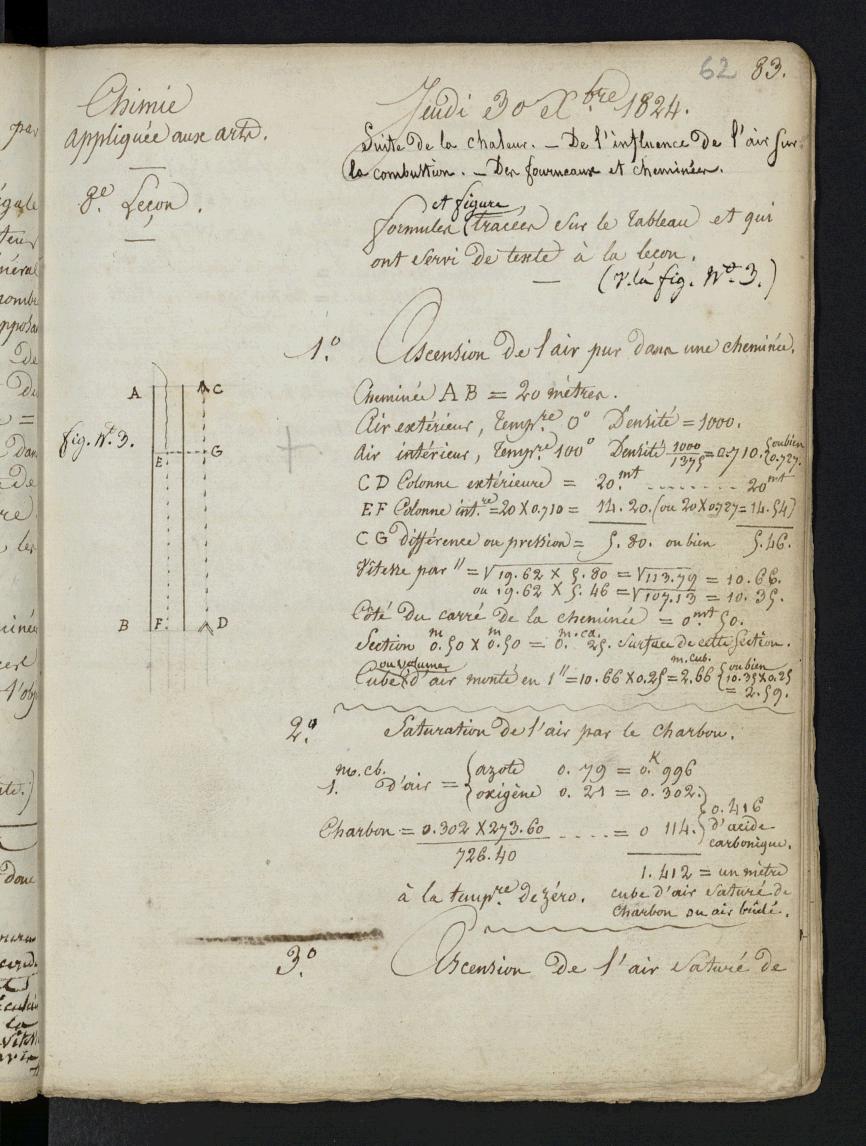 62 83.
Chimie
appliquée aux arts.
8e. Leçon.
Jeudi 30 Xbre 1824.
Suite de la chaleur. — De l'influence de l'air sur
la combustion. — Des fourneaux et cheminées.
et figure
formules (tracées sur le tableau et qui
ont servi de texte) à la leçon.
(V. la fig. No. 3.)
1o. Ascension de l'air pur dans une cheminée.
Cheminée AB = 20 mètres.
Air extérieur, Tempre. 0° Densité = 1000.
Air intérieur, Tempre. 100° Densité 1000/1375 = 0.710. { ou bien 0.727.
CD Colonne extérieure = 20.mt ........ 20mt
EF Colonne int.re = 20 X 0.710 = 14.20. (ou 20 X 0.727 = 14.54)
CG différence ou pression = 5.80. ou bien 5.46.
Vitesse par " = √19.62 X 5.80 = √113.79 = 10.66.
ou 19.62 X 5.46 = √107.13 = 10.35.
Côté du carré de la cheminée = 0mt 50.
Section 0.m50 X 0.m50 = 0.m.ca. 25. surface de cette section.
ou volume
Cube (d'air monté en 1" = 10.66 X 0.25 = 2.m.cub.66 { ou bien 10.35 X 0.25 = 2.59.
fig. No. 3.
A C
E G
B F D
2o. Saturation de l'air par le charbon.
1.m.cb. d'air = { azote 0.79 = 0.K996
{ oxigène 0.21 = 0.302.
Charbon = 0.302 X 273.60 / 726.40 .... = 0 114. } 0.416 d'acide carbonique.
1.412 = un mètre
à la tempre. de zéro. cube d'air saturé de
charbon ou air brûlé.
3o. Ascension de l'air saturé de